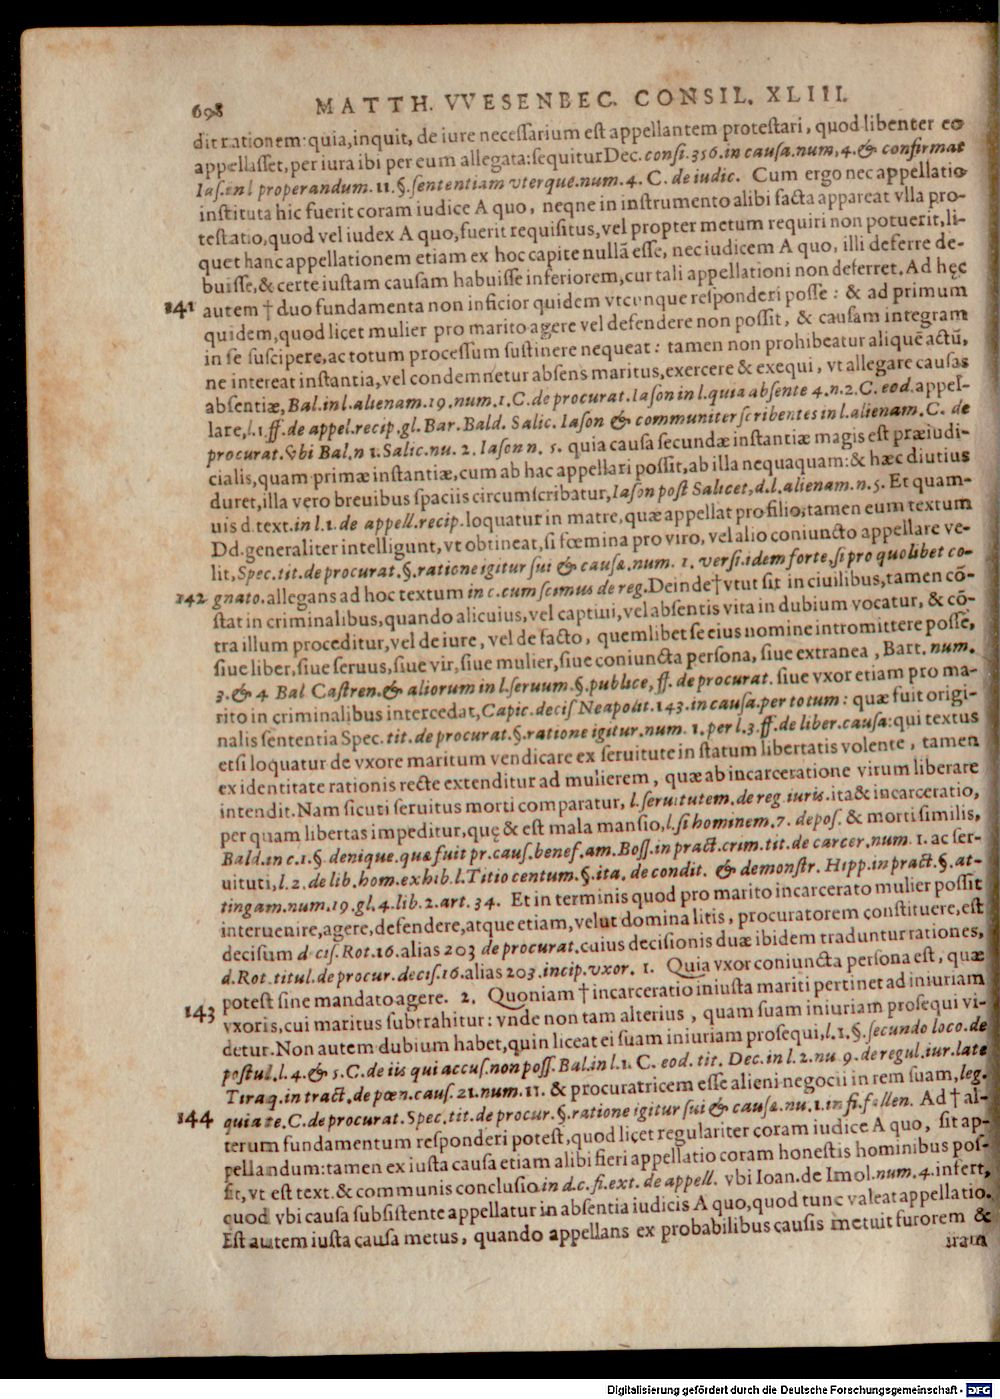 698 MATTH. VVESENBEC. CONSIL. XLIII.
dit rationem: quia, inquit, de iure necessarium est appellantem protestari, quod libenter eo
appellasset, per iura ibi per eum allegata: sequitur Dec. consi. 356. in causa. num, 4. & confirmat
Ias. in l properandum. 11. §. sententiam vterque. num. 4. C. de iudic. Cum ergo nec appellatio
instituta hic fuerit coram iudice A quo, neqne in instrumento alibi facta appareat vlla pro-
testatio, quod vel iudex A quo, fuerit requisitus, vel propter metum requiri non potuerit, li-
quet hanc appellationem etiam ex hoc capite nullā esse, nec iudicem A quo, illi deferre de-
buisse, & certe iustam causam habuisse inferiorem, cur tali appellationi non deferret. Ad hęc
141 autem † duo fundamenta non inficior quidem vtcunque responderi posse: & ad primum
quidem, quod licet mulier pro marito agere vel defendere non possit, & causam integram
in se suscipere, ac totum processum sustinere nequeat: tamen non prohibeatur aliquē actū,
ne intereat instantia, vel condemnetur absens maritus, exercere & exequi, vt allegare causas
absentiæ, Bal. in l. alienam. 19. num. 1. C. de procurat. Iason in l. quia absente 4. n. 2. C. eod. appel-
lare, l. 1. ff. de appel. recip. gl. Bar. Bald. Salic. Iason & communiter scribentes in l. alienam. C. de
procurat. vbi Bal. n 1. Salic. nu. 2. Iason n. 5. quia causa secundæ instantiæ magis est præiudi-
cialis, quam primæ instantiæ, cum ab hac appellari possit, ab illa nequaquam: & hæc diutius
duret, illa vero breuibus spaciis circumscribatur, Iason post Salicet, d. l. alienam. n. 5. Et quam-
uis d. text. in l. 1. de appell. recip. loquatur in matre, quæ appellat pro filio, tamen eum textum
Dd. generaliter intelligunt, vt obtineat, si fœmina pro viro, vel alio coniuncto appellare ve-
lit, Spec. tit. de procurat. §. ratione igitur sui & causæ. num. 1. versi. idem forte, si pro quolibet co-
142 gnato. allegans ad hoc textum in c. cum scimus de reg. Deinde † vtut sit in ciuilibus, tamen cō-
stat in criminalibus, quando alicuius, vel captiui, vel absentis vita in dubium vocatur, & cō-
tra illum proceditur, vel de iure, vel de facto, quemlibet se eius nomine intromittere posse,
siue liber, siue seruus, siue vir, siue mulier, siue coniuncta persona, siue extranea, Bart. num.
3. & 4 Bal Castren. & aliorum in l. seruum. §. publice, ff. de procurat. siue vxor etiam pro ma-
rito in criminalibus intercedat, Capic. decis Neapolit. 143. in causa. per totum: quæ fuit origi-
nalis sententia Spec. tit. de procurat. §. ratione igitur. num. 1. per l. 3. ff. de liber. causa: qui textus
etsi loquatur de vxore maritum vendicare ex seruitute in statum libertatis volente, tamen
ex identitate rationis recte extenditur ad mulierem, quæ ab incarceratione virum liberare
intendit. Nam sicuti seruitus morti comparatur, l. seruitutem. de reg. iuris. ita & incarceratio,
per quam libertas impeditur, quę & est mala mansio, l. si hominem. 7. depos. & morti similis,
Bald. in c. 1. §. denique. quæ fuit pr. caus. benef. am. Boss. in pract. crim. tit. de carcer. num. 1. ac ser-
uituti, l. 2. de lib. hom. exhib. l. Titio centum. §. ita. de condit. & demonstr. Hipp. in pract. §. at-
tingam. num. 19. gl. 4. lib. 2. art. 34. Et in terminis quod pro marito incarcerato mulier possit
interuenire, agere, defendere, atque etiam, velut domina litis, procuratorem constituere, est
decisum d cis. Rot. 16. alias 203 de procurat. cuius decisionis duæ ibidem traduntur rationes,
d. Rot. titul. de procur. decis. 16. alias 203. incip. vxor. 1. Quia vxor coniuncta persona est, quæ
potest sine mandato agere. 2. Quoniam † incarceratio iniusta mariti pertinet ad iniuriam
143 vxoris, cui maritus subtrahitur: vnde non tam alterius, quam suam iniuriam prosequi vi-
detur. Non autem dubium habet, quin liceat ei suam iniuriam prosequi, l. 1. §. secundo loco. de
postul. l. 4. & 5. C. de iis qui accus. non poss. Bal. in l. 1. C. eod. tit. Dec. in l. 2. nu 9. de regul. iur. late
Tiraq. in tract. de pœn. caus. 21. num. 11. & procuratricem esse alieni negocii in rem suam, leg.
144 quia te. C. de procurat. Spec. tit. de procur. §. ratione igitur sui & causæ. nu. 1. in fi. fallen. Ad † al-
terum fundamentum responderi potest, quod licet regulariter coram iudice A quo, sit ap-
pellandum: tamen ex iusta causa etiam alibi fieri appellatio coram honestis hominibus pos-
sit, vt est text. & communis conclusio in d. c. fi. ext. de appell. vbi Ioan. de Imol. num. 4. infert,
quod vbi causa subsistente appellatur in absentia iudicis A quo, quod tunc valeat appellatio.
Est autem iusta causa metus, quando appellans ex probabilibus causis metuit furorem &
iram
Digitalisierung gefördert durch die Deutsche Forschungsgemeinschaft - DFG